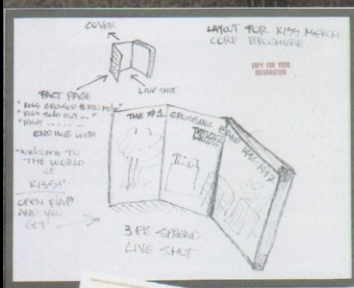 COVER
LAYOUT FOR KISS MERCH
CORP BROCHURE
COPY FOR YOUR
INFORMATION
FACT PAGE
LIVE SHOT
"KISS GROSSED
"KISS SOLD OUT..."
"KISS
ENDING WITH
"WELCOME TO
THE WORLD
OF
KISS"
OPEN FLAP
AND YOU
GET
THE #1 GROSSING BAND 1996-1997
3 PG SPREAD
LIVE SHOT